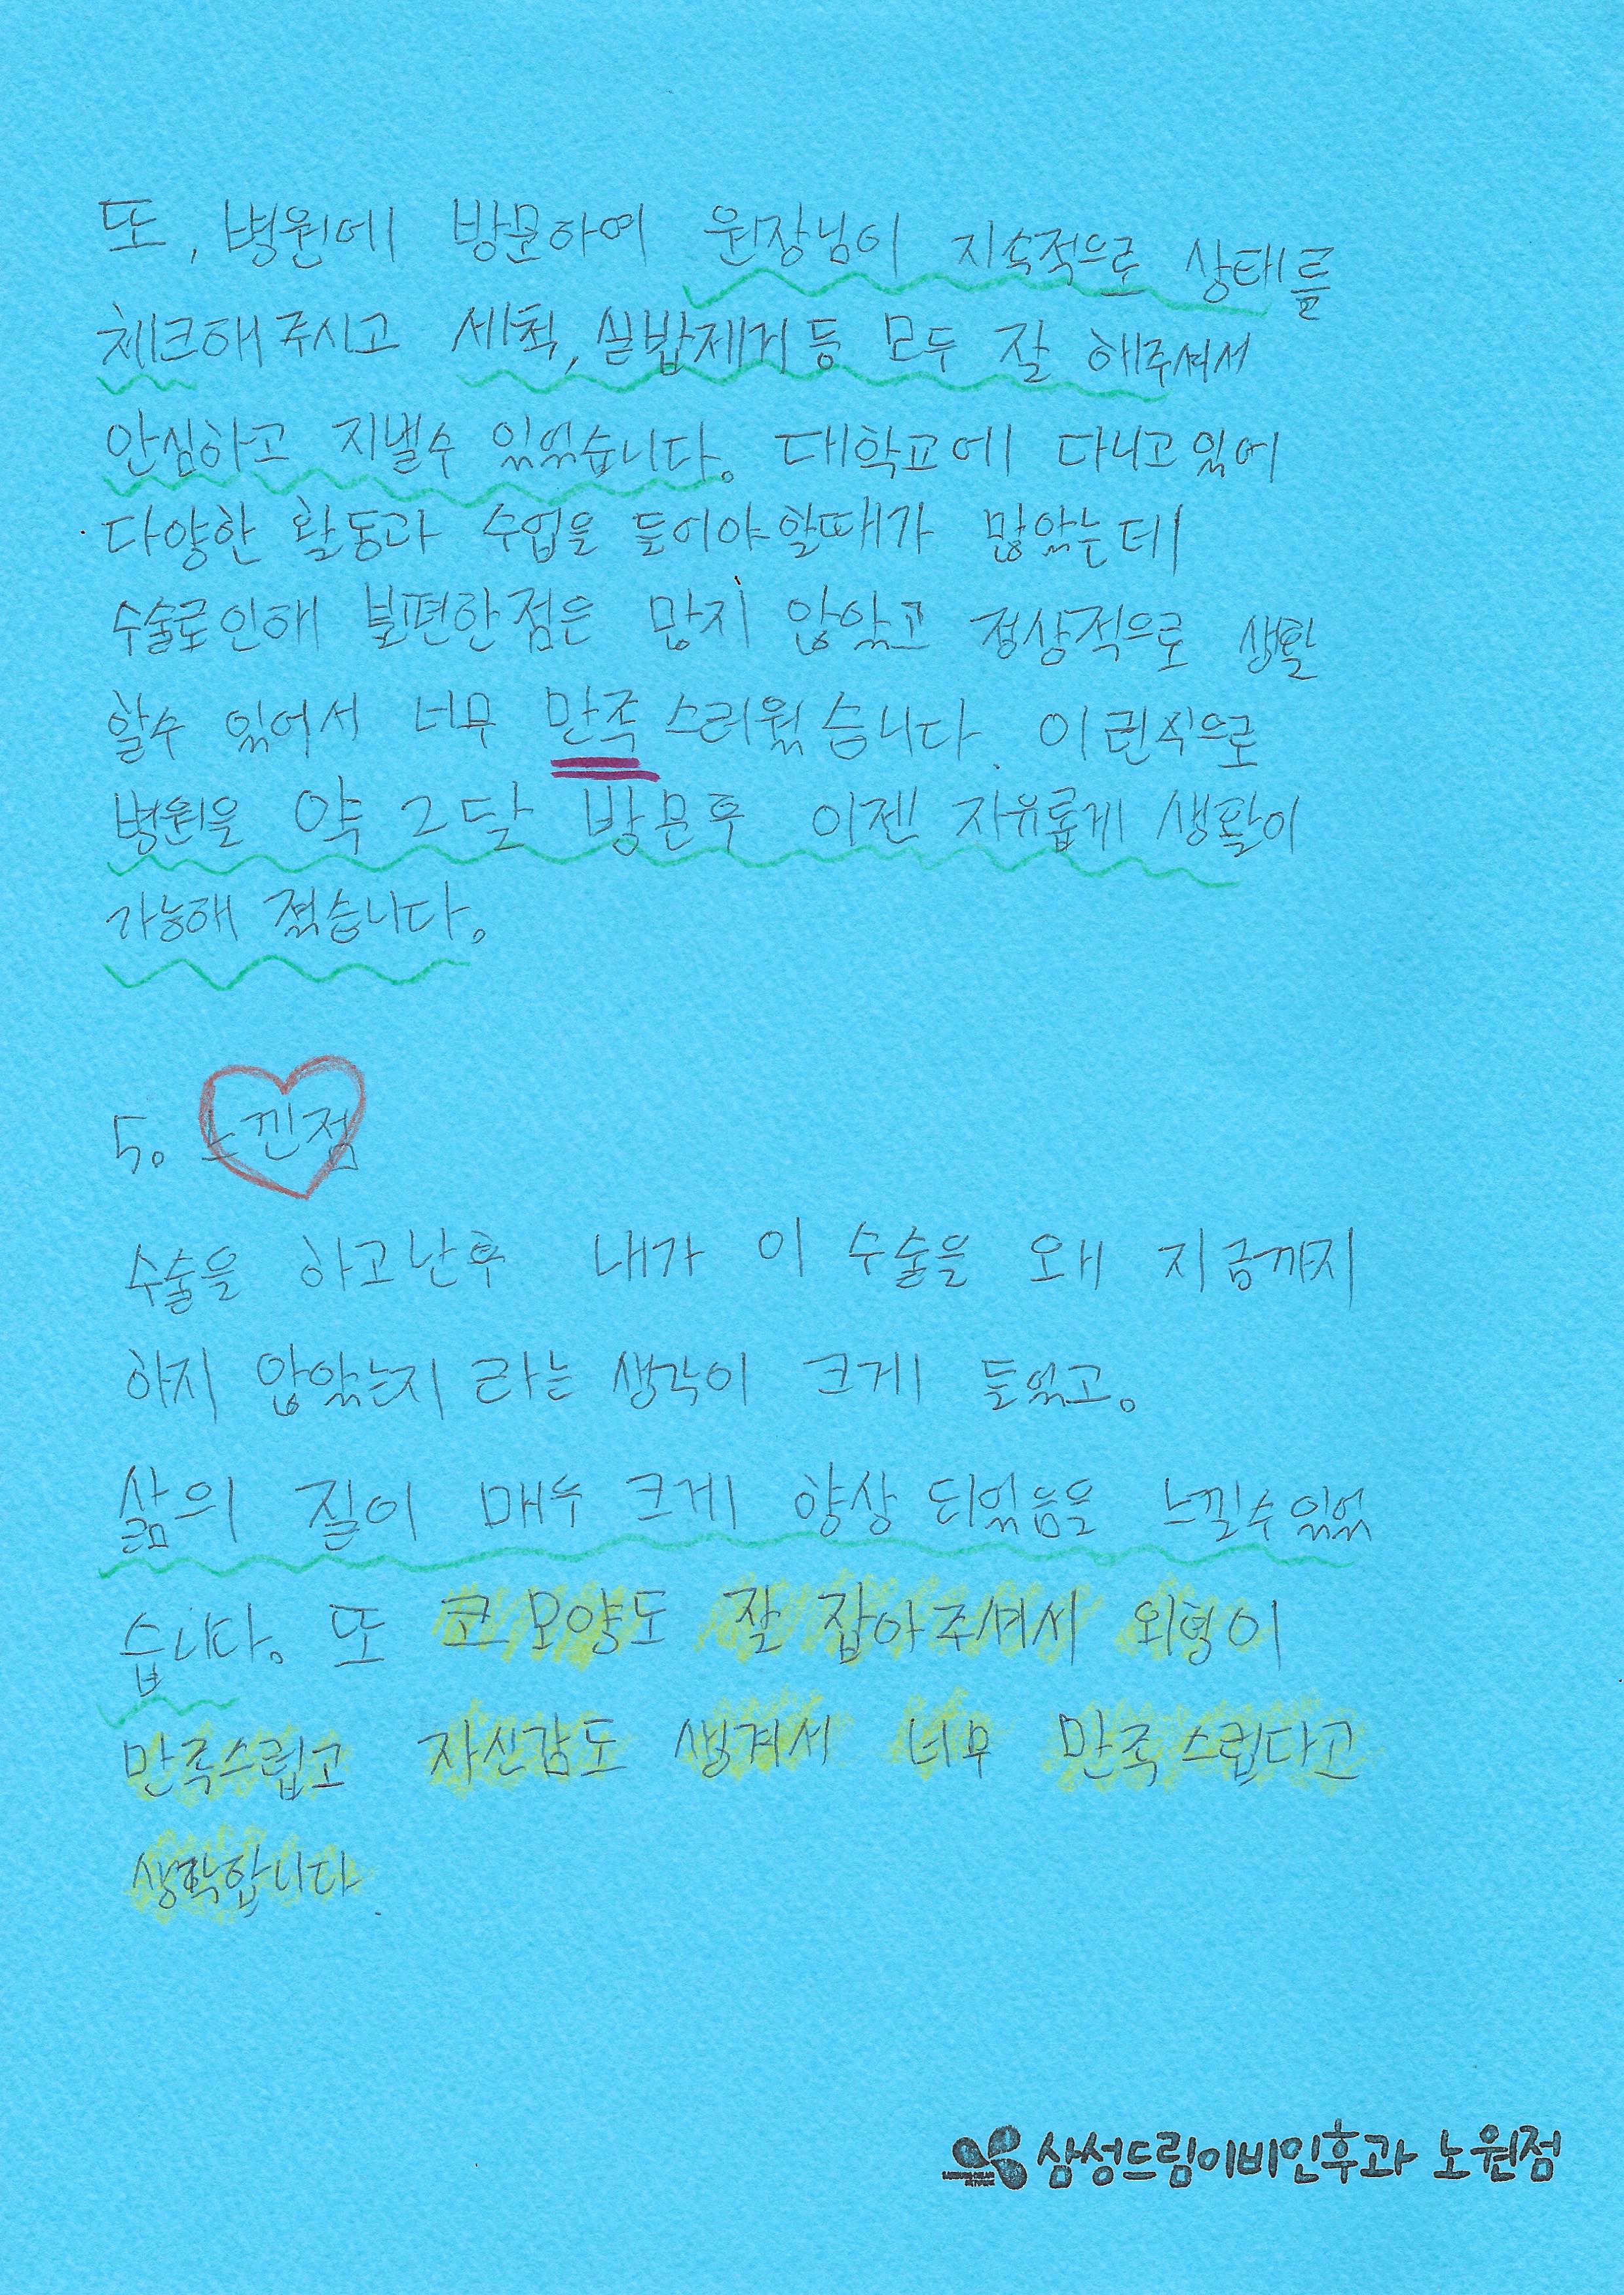 또, 병원에 방문하여 원장님이 지속적으로 상태를
체크해주시고 세척, 실밥제거등 모두 잘 해주셔서
안심하고 지낼수 있었습니다. 대학교에 다니고있어
다양한 활동과 수업을 들어야할때가 많았는데
수술로인해 불편한점은 많지 않았고 정상적으로 생활
할수 있어서 너무 만족스러웠습니다. 이런식으로
병원을 약 2달 방문후 이젠 자유롭게 생활이
가능해 졌습니다.
5. 느낀점
수술을 하고난후 내가 이 수술을 왜 지금까지
하지 않았는지 라는 생각이 크게 들었고.
삶의 질이 매우 크게 향상 되었음을 느낄수있었
습니다. 또 코모양도 잘 잡아주셔서 외형이
만족스럽고 자신감도 생겨서 너무 만족스럽다고
생각합니다.
삼성드림이비인후과 노원점